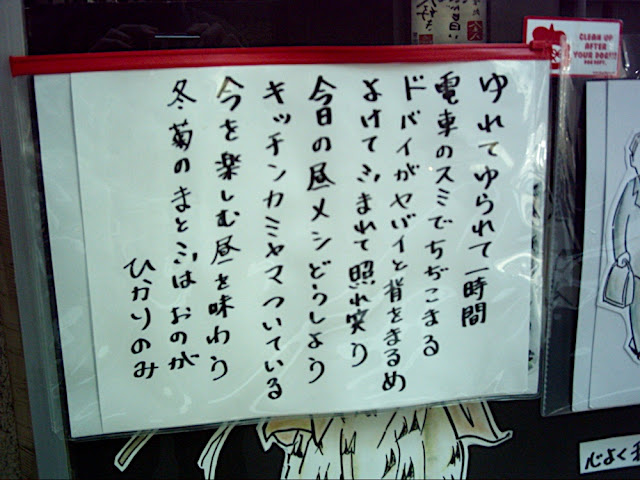 ゆれてゆられて一時間
電車のスミでちぢこまる
ドバイがヤバイと背をまるめ
よけてふまれて照れ笑り
今日の昼メシどうしよう
キッチンカミヤマついている
今を楽しむ昼を味わう
冬菊のまとふはおのが
ひかりのみ
CLEAN UP
AFTER
YOUR DOG!!!
心よく